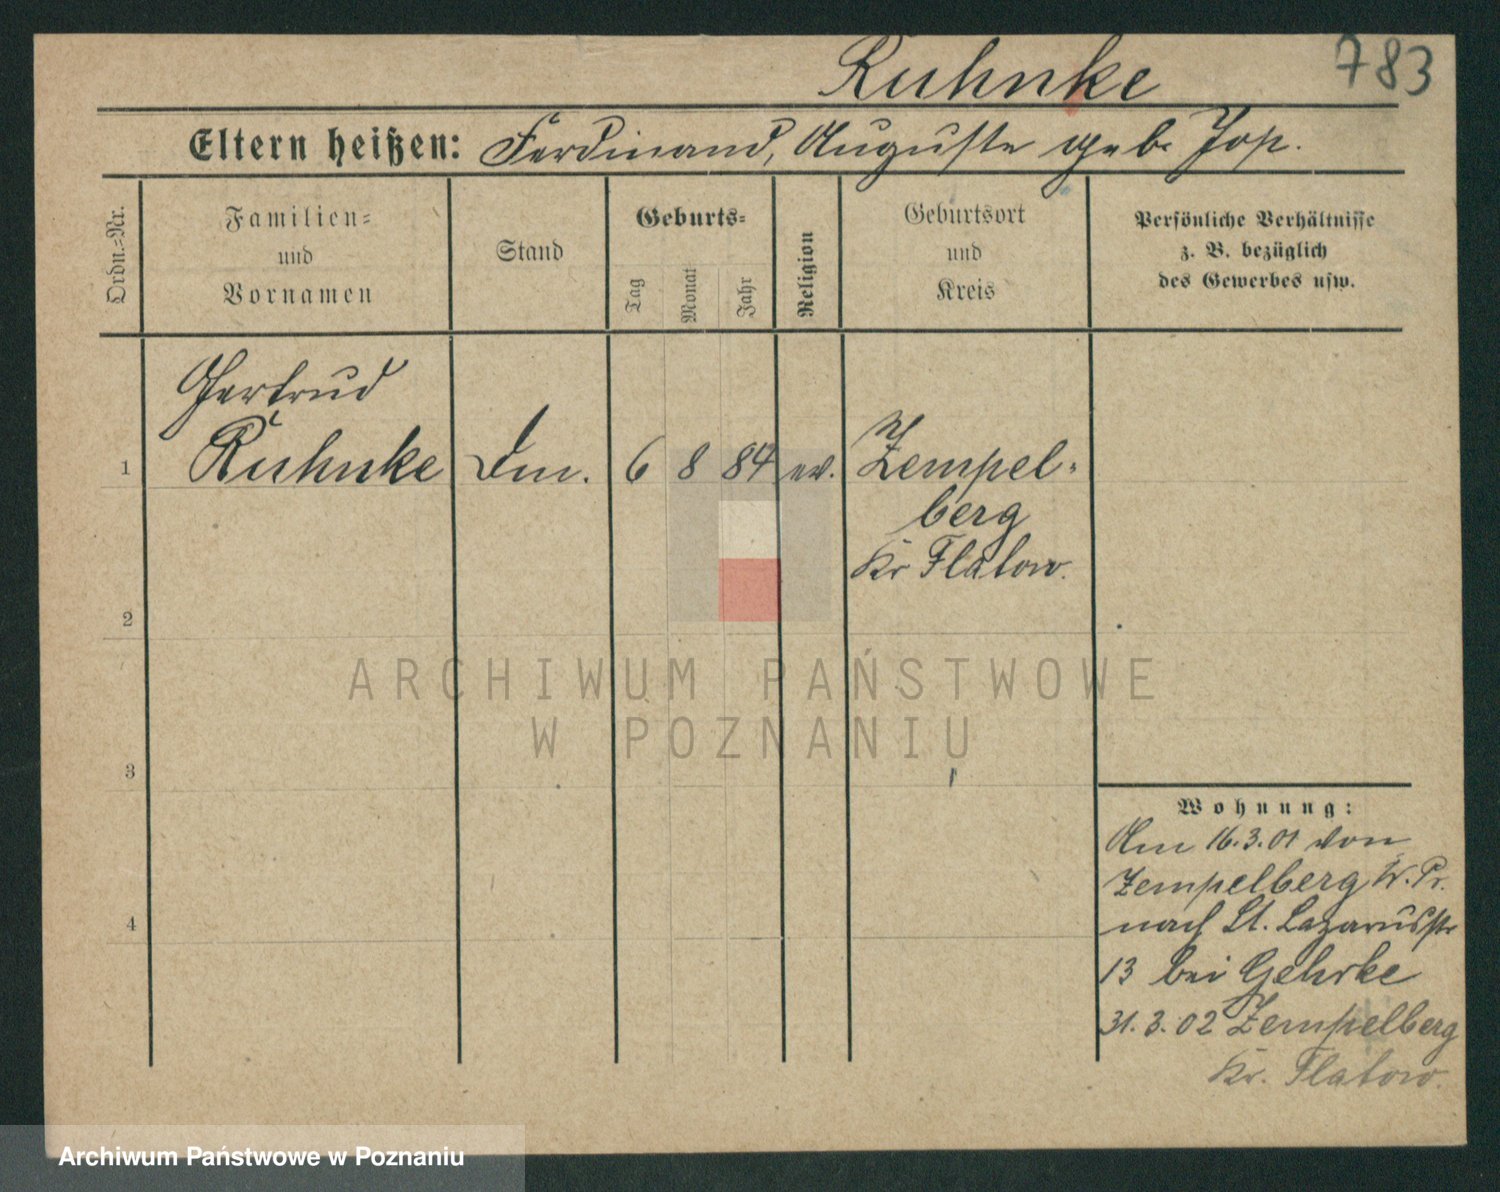 Ruhnke
783
Eltern heißen: Ferdinand, Auguste geb. Jop.
Ordn.=Nr.
Familien=
und
Vornamen
Stand
Geburts=
Tag
Monat
Jahr
Religion
Geburtsort
und
Kreis
Persönliche Verhältnisse
z. B. bezüglich
des Gewerbes usw.
Gertrud
1 Ruhnke 6 8 84 ev. Zempel-
berg
Kr Flatow.
2
3
4
ARCHIWUM PAŃSTWOWE
W POZNANIU
Wohnung:
Am 16.3.01 von
Zempelberg W. Pr.
nach St. Lazarusstr
13 bei Gehrke
31.3.02 Zempelberg
Kr. Flatow.
Archiwum Państwowe w Poznaniu